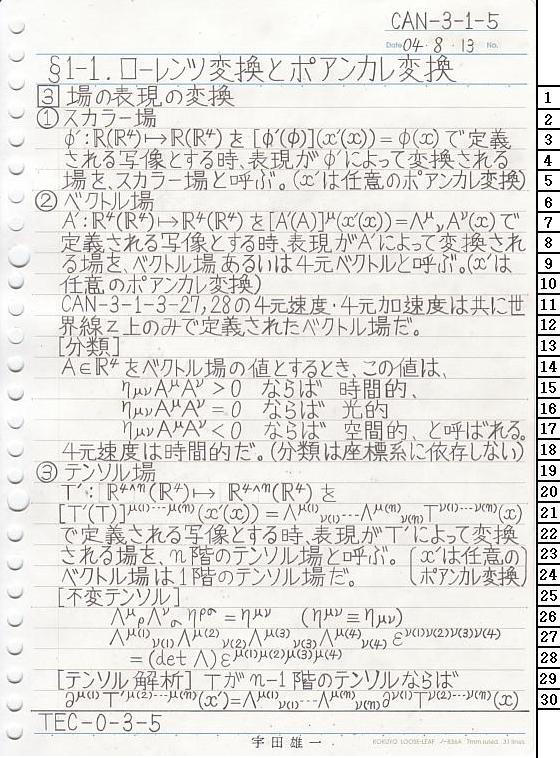 CAN-3-1-5
Date 04・8・13 No.
§1-1. ローレンツ変換とポアンカレ変換
3 場の表現の変換
① スカラー場
φ′:ℝ(ℝ⁴)↦ℝ(ℝ⁴) を [φ′(φ)](x′(x))=φ(x) で定義
される写像とする時、表現がφ′によって変換される
場を、スカラー場と呼ぶ。(x′は任意のポアンカレ変換)
② ベクトル場
A′:ℝ⁴(ℝ⁴)↦ℝ⁴(ℝ⁴)を[A′(A)]^μ(x′(x))=Λ^μ_ν A^ν(x) で
定義される写像とする時、表現がA′によって変換され
る場を、ベクトル場あるいは4元ベクトルと呼ぶ。(x′は
任意のポアンカレ変換)
CAN-3-1-3-27,28の4元速度・4元加速度は共に世
界線z上のみで定義されたベクトル場だ。
[分類]
A∈ℝ⁴をベクトル場の値とするとき、この値は、
η_μν A^μ A^ν > 0 ならば 時間的、
η_μν A^μ A^ν = 0 ならば 光的
η_μν A^μ A^ν < 0 ならば 空間的、と呼ばれる。
4元速度は時間的だ。(分類は座標系に依存しない)
③ テンソル場
T′:ℝ^{4∧n}(ℝ⁴)↦ℝ^{4∧n}(ℝ⁴) を
[T′(T)]^{μ(1)…μ(n)}(x′(x))=Λ^{μ(1)}_{ν(1)}…Λ^{μ(n)}_{ν(n)}T^{ν(1)…ν(n)}(x)
で定義される写像とする時、表現がT′によって変換
される場を、n階のテンソル場と呼ぶ。(x′は任意の
ベクトル場は1階のテンソル場だ。 ポアンカレ変換)
[不変テンソル]
Λ^μ_ρ Λ^ν_σ η^{ρσ} = η^{μν} (η^{μν} ≡ η_{μν})
Λ^{μ(1)}_{ν(1)}Λ^{μ(2)}_{ν(2)}Λ^{μ(3)}_{ν(3)}Λ^{μ(4)}_{ν(4)} ε^{ν(1)ν(2)ν(3)ν(4)}
=(det Λ)ε^{μ(1)μ(2)μ(3)μ(4)}
[テンソル解析] Tがn-1階のテンソルならば
∂^{μ(1)}T′^{μ(2)…μ(n)}(x′)=Λ^{μ(1)}_{ν(1)}…Λ^{μ(n)}_{ν(n)}∂^{ν(1)}T^{ν(2)…ν(n)}(x)
TEC-0-3-5
宇田雄一
KOKUYO LOOSE-LEAF ノ-836A 7mm ruled. 31 lines
1
2
3
4
5
6
7
8
9
10
11
12
13
14
15
16
17
18
19
20
21
22
23
24
25
26
27
28
29
30